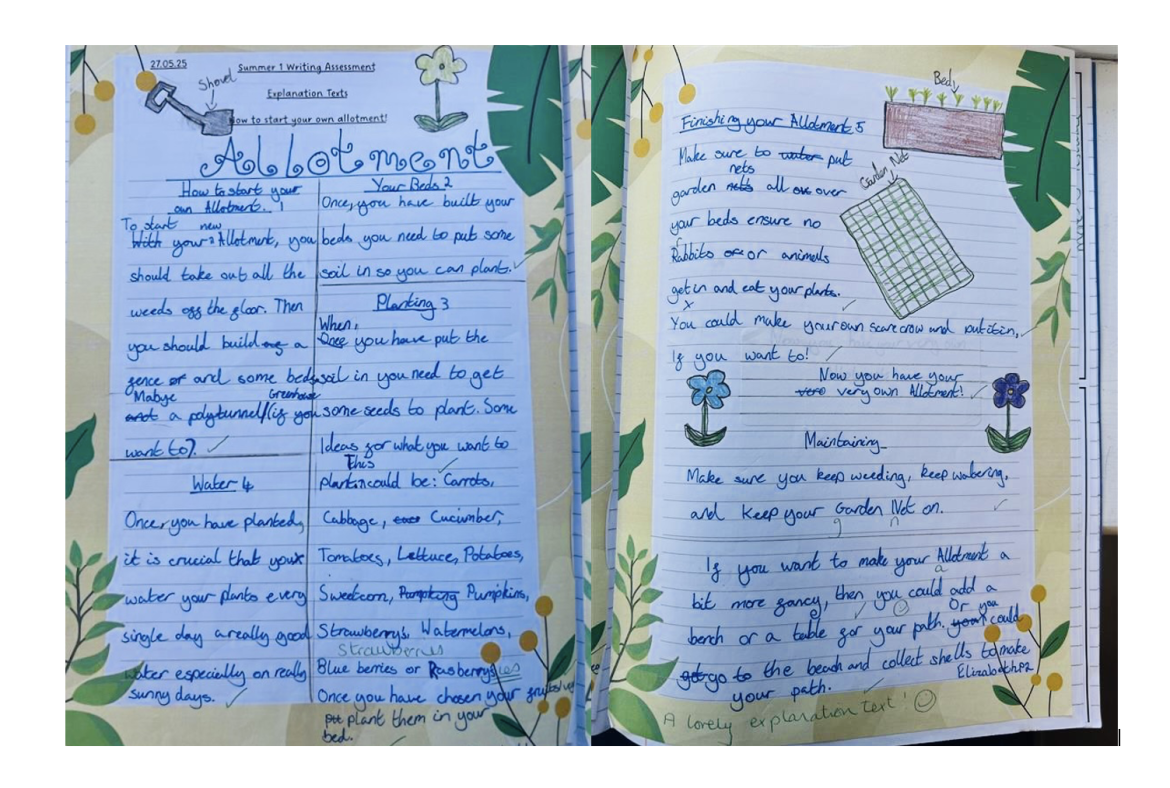 27.05.25
Summer 1 Writing Assessment
Shovel
Explanation Texts
How to start your own allotment!
Allotment
How to start your
own Allotment. 1
To start new
With your Allotment, you
should take out all the
weeds off the floor. Then
you should build a
fence or and some beds
Mabye Greenhouse
and a polytunnel/(if you
want to).
Your Beds 2
Once, you have built your
beds you need to put some
soil in so you can plant.
Planting 3
When,
Once you have put the
soil in you need to get
some seeds to plant. Some
Ideas for what you want to
This
plant could be: Carrots,
Cabbage, Cucumber,
Tomatoes, Lettuce, Potatoes,
Sweetcorn, Pumpking Pumpkins,
Strawberry's, Watermelons,
strawberries
Blue berries or Rasberrys ies
Once you have chosen your
put plant them in your
bed.
Water 4
Once, you have planted,
it is crucial that your
water your plants every
single day a really good
water especially on really
sunny days.
Bed
Finishing your Allotment 5
Make sure to water put
nets
garden nets all over
Garden Net
your beds ensure no
Rabbits or or animals
get in and eat your plants.
You could make your own scarecrow and put it in,
If you want to!
Now you have your
very own Allotment!
Maintaining
Make sure you keep weeding, keep watering,
and keep your Garden Net on.
g n
If you want to make your Allotment a
a
bit more fancy, then you could add a
bench or a table for your path. Or you could
got go to the beach and collect shells to make
your path.
A lovely explanation text!